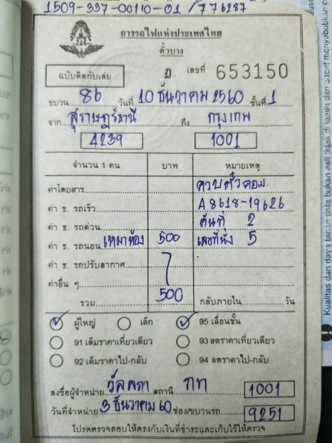 1509-997-0010-01/776287
การรถไฟแห่งประเทศไทย
ตั๋วบาง
ฉบับติดกับเล่ม
เลขที่ 653150
ขบวน 86 วันที่ 10 ธันวาคม 2560 ชั้นที่ 1
จาก สุราษฎร์ธานี ถึง กรุงเทพ
4239 1001
จำนวน 1 คน บาท หมายเหตุ
ค่าโดยสาร ควบตั๋วคอม.
ค่า ธ. รถเร็ว A8618-19626
ค่า ธ. รถด่วน คันที่ 2
ค่า ธ. รถนอน เหมาห้อง 500 เลขที่นั่ง 5
ค่า ธ. รถปรับอากาศ
ค่าอื่น ๆ
รวม 500 กลับภายใน วัน
ผู้ใหญ่ เด็ก 95 เลื่อนชั้น
91 เต็มราคาเที่ยวเดียว 93 ลดราคาเที่ยวเดียว
92 เต็มราคาไป-กลับ 94 ลดราคาไป-กลับ
ลงชื่อผู้จำหน่าย วัลลภา สถานี กท 1001
วันที่จำหน่าย 3 ธันวาคม 60 ช่อง/ขบวนรถ 9251
โปรดตรวจสอบให้ตรงกับเงินที่ชำระและเก็บไว้ให้ตรวจ